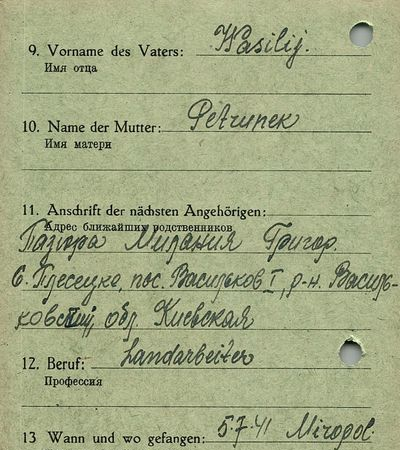 9. Vorname des Vaters: Wasilij.
Имя отца
10. Name der Mutter: Petrunek
Имя матери
11. Anschrift der nächsten Angehörigen:
Адрес ближайших родственников
Григор.
с. Плесецке, пос. Васильков I, р-н. Василь-
ковский, обл. Киевская
12. Beruf: Landarbeiter
Профессия
13 Wann und wo gefangen: 5.7.41 Miropol.